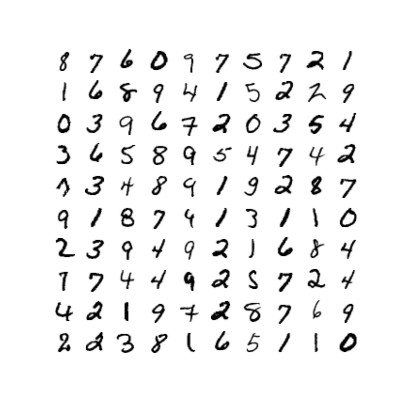 8 7 6 0 9 7 5 7 2 1
1 6 8 9 4 1 5 2 2 9
0 3 9 6 7 2 0 3 5 4
3 6 5 8 9 5 4 7 4 2
3 4 8 9 1 9 2 8 7
9 1 8 7 9 1 3 1 1 0
2 3 9 4 9 2 1 6 8 4
7 7 4 4 9 2 5 7 2 4
4 2 1 9 7 2 8 7 6 9
2 2 3 8 1 6 5 1 1 0